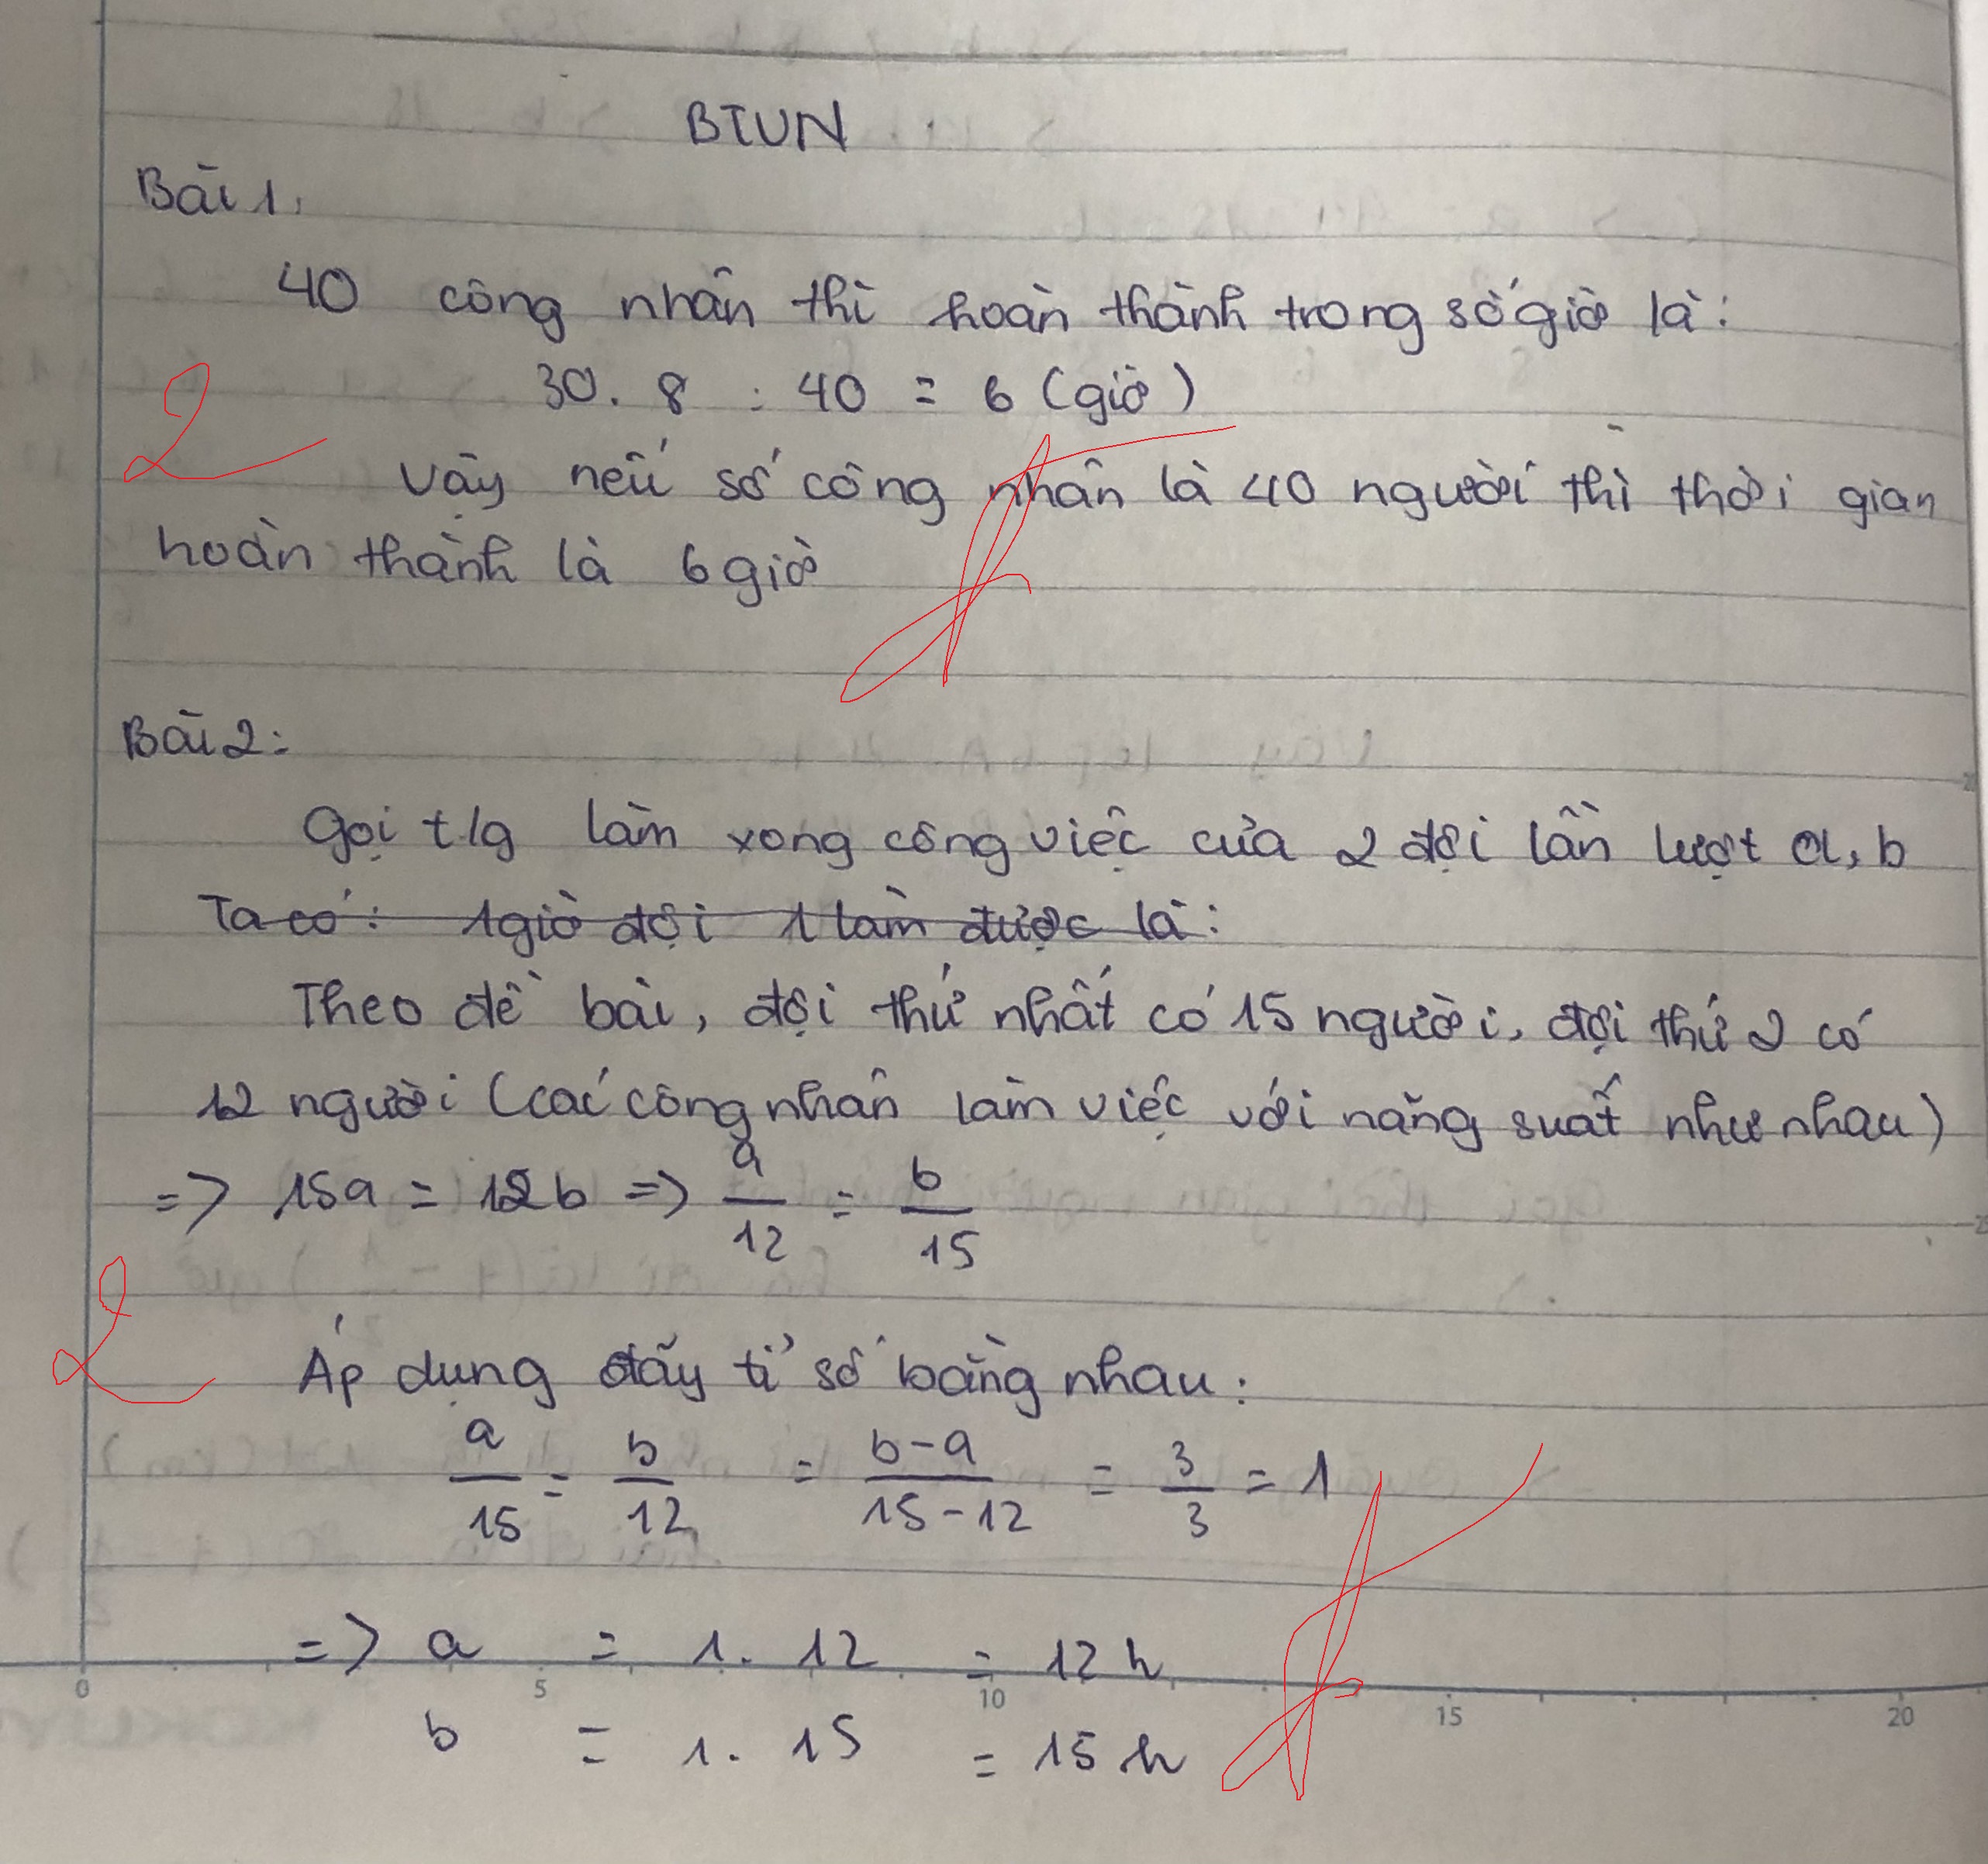 BTVN
Bài 1.
40 công nhân thì hoàn thành trong số giờ là:
30. 8 : 40 = 6 (giờ)
2
Vậy nếu số công nhân là 40 người thì thời gian
hoàn thành là 6 giờ
Bài 2:
Gọi t/g làm xong công việc của 2 đội lần lượt a, b
Ta có: 1 giờ đội 1 làm được là:
Theo đề bài, đội thứ nhất có 15 người, đội thứ 2 có
12 người (các công nhân làm việc với năng suất như nhau)
=> 15a = 12b => a/12 = b/15
2
Áp dụng dãy tỉ số bằng nhau:
a/15 = b/12 = b-a/15-12 = 3/3 = 1
=> a = 1. 12 = 12 h
0 5 10 15 20
b = 1. 15 = 15 h